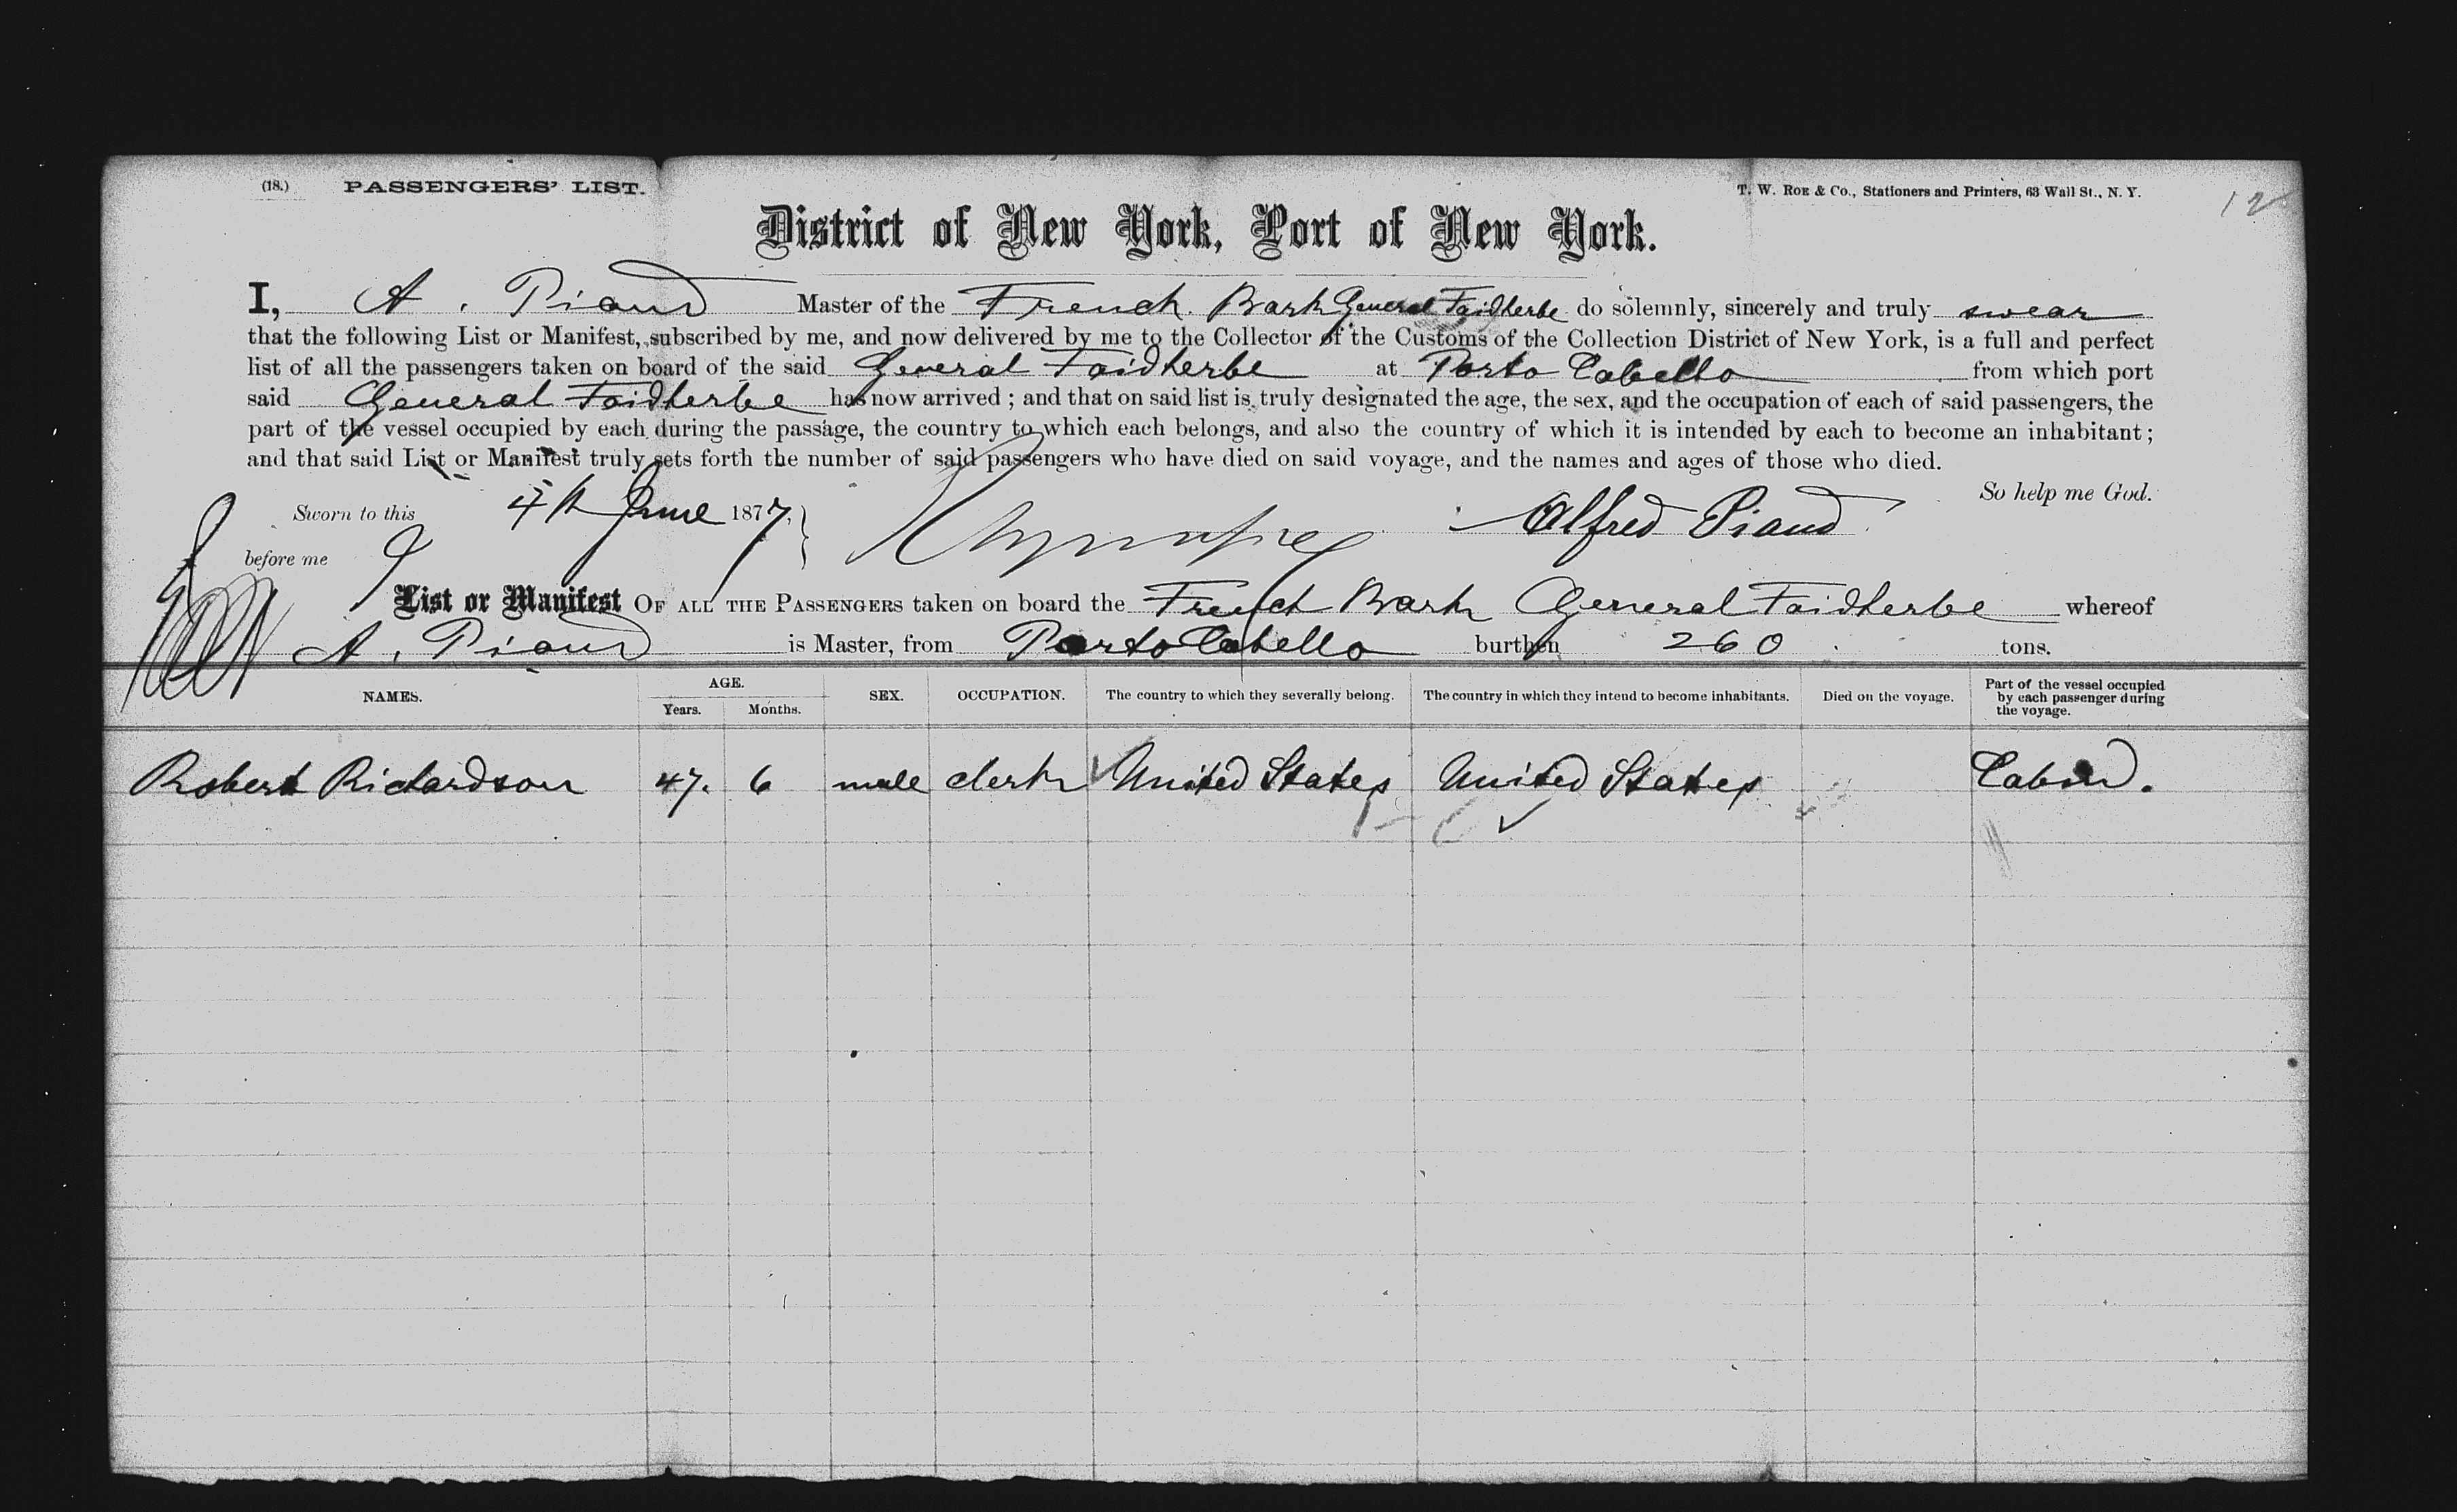 (18.) PASSENGERS' LIST.
T. W. ROE & Co., Stationers and Printers, 63 Wall St., N. Y.
12
District of New York, Port of New York.
I, A. Piaud Master of the French Bark General Faidherbe do solemnly, sincerely and truly swear
that the following List or Manifest, subscribed by me, and now delivered by me to the Collector of the Customs of the Collection District of New York, is a full and perfect
list of all the passengers taken on board of the said General Faidherbe at Porto Cabello from which port
said General Faidherbe has now arrived ; and that on said list is truly designated the age, the sex, and the occupation of each of said passengers, the
part of the vessel occupied by each during the passage, the country to which each belongs, and also the country of which it is intended by each to become an inhabitant ;
and that said List or Manifest truly sets forth the number of said passengers who have died on said voyage, and the names and ages of those who died.
So help me God.
Sworn to this 4th June 1877, Alfred Piaud
before me
List or Manifest OF ALL THE PASSENGERS taken on board the French Bark General Faidherbe whereof
A. Piaud is Master, from Porto Cabello burthen 260 tons.
NAMES. AGE. Years. Months. SEX. OCCUPATION. The country to which they severally belong. The country in which they intend to become inhabitants. Died on the voyage. Part of the vessel occupied by each passenger during the voyage.
Robert Richardson 47. 6 male clerk United States United States Cabin.